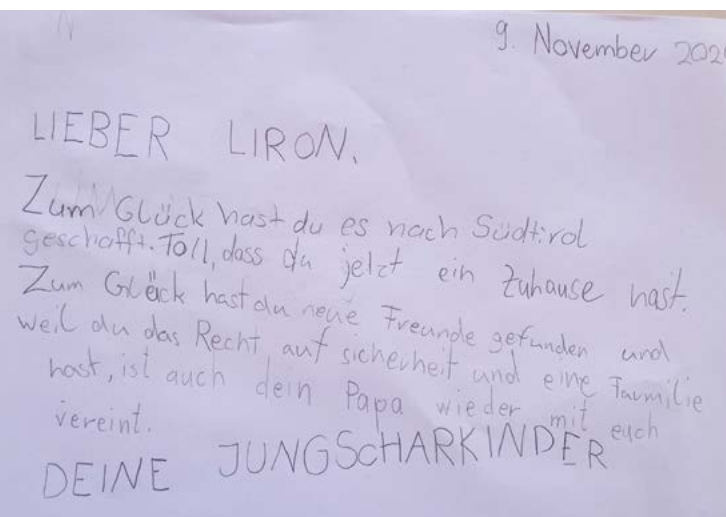 9. November 202
LIEBER LIRON,
Zum Glück hast du es nach Südtirol
geschafft. Toll, dass du jetzt ein Zuhause hast.
Zum Glück hast du neue Freunde gefunden und
weil du das Recht auf sicherheit und eine Faumilie
hast, ist auch dein Papa wieder mit euch
vereint.
DEINE JUNGSCHARKINDER